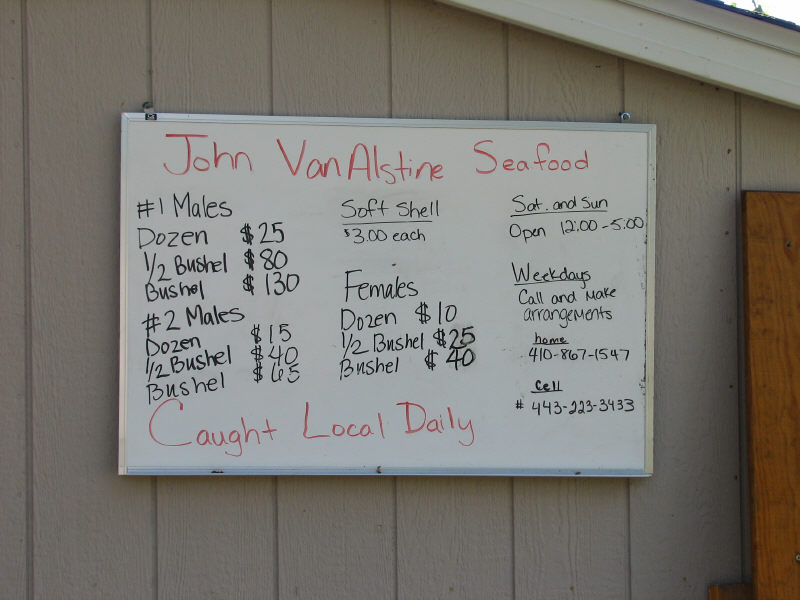 John VanAlstine Seafood
#1 Males
Dozen $25
1/2 Bushel $80
Bushel $130
#2 Males
Dozen $15
1/2 Bushel $40
Bushel $65
Soft Shell
$3.00 each
Females
Dozen $10
1/2 Bushel $25
Bushel $40
Sat. and Sun
Open 12:00-5:00
Weekdays
Call and Make
arrangements
home
410-867-1547
Cell
# 443-223-3433
Caught Local Daily